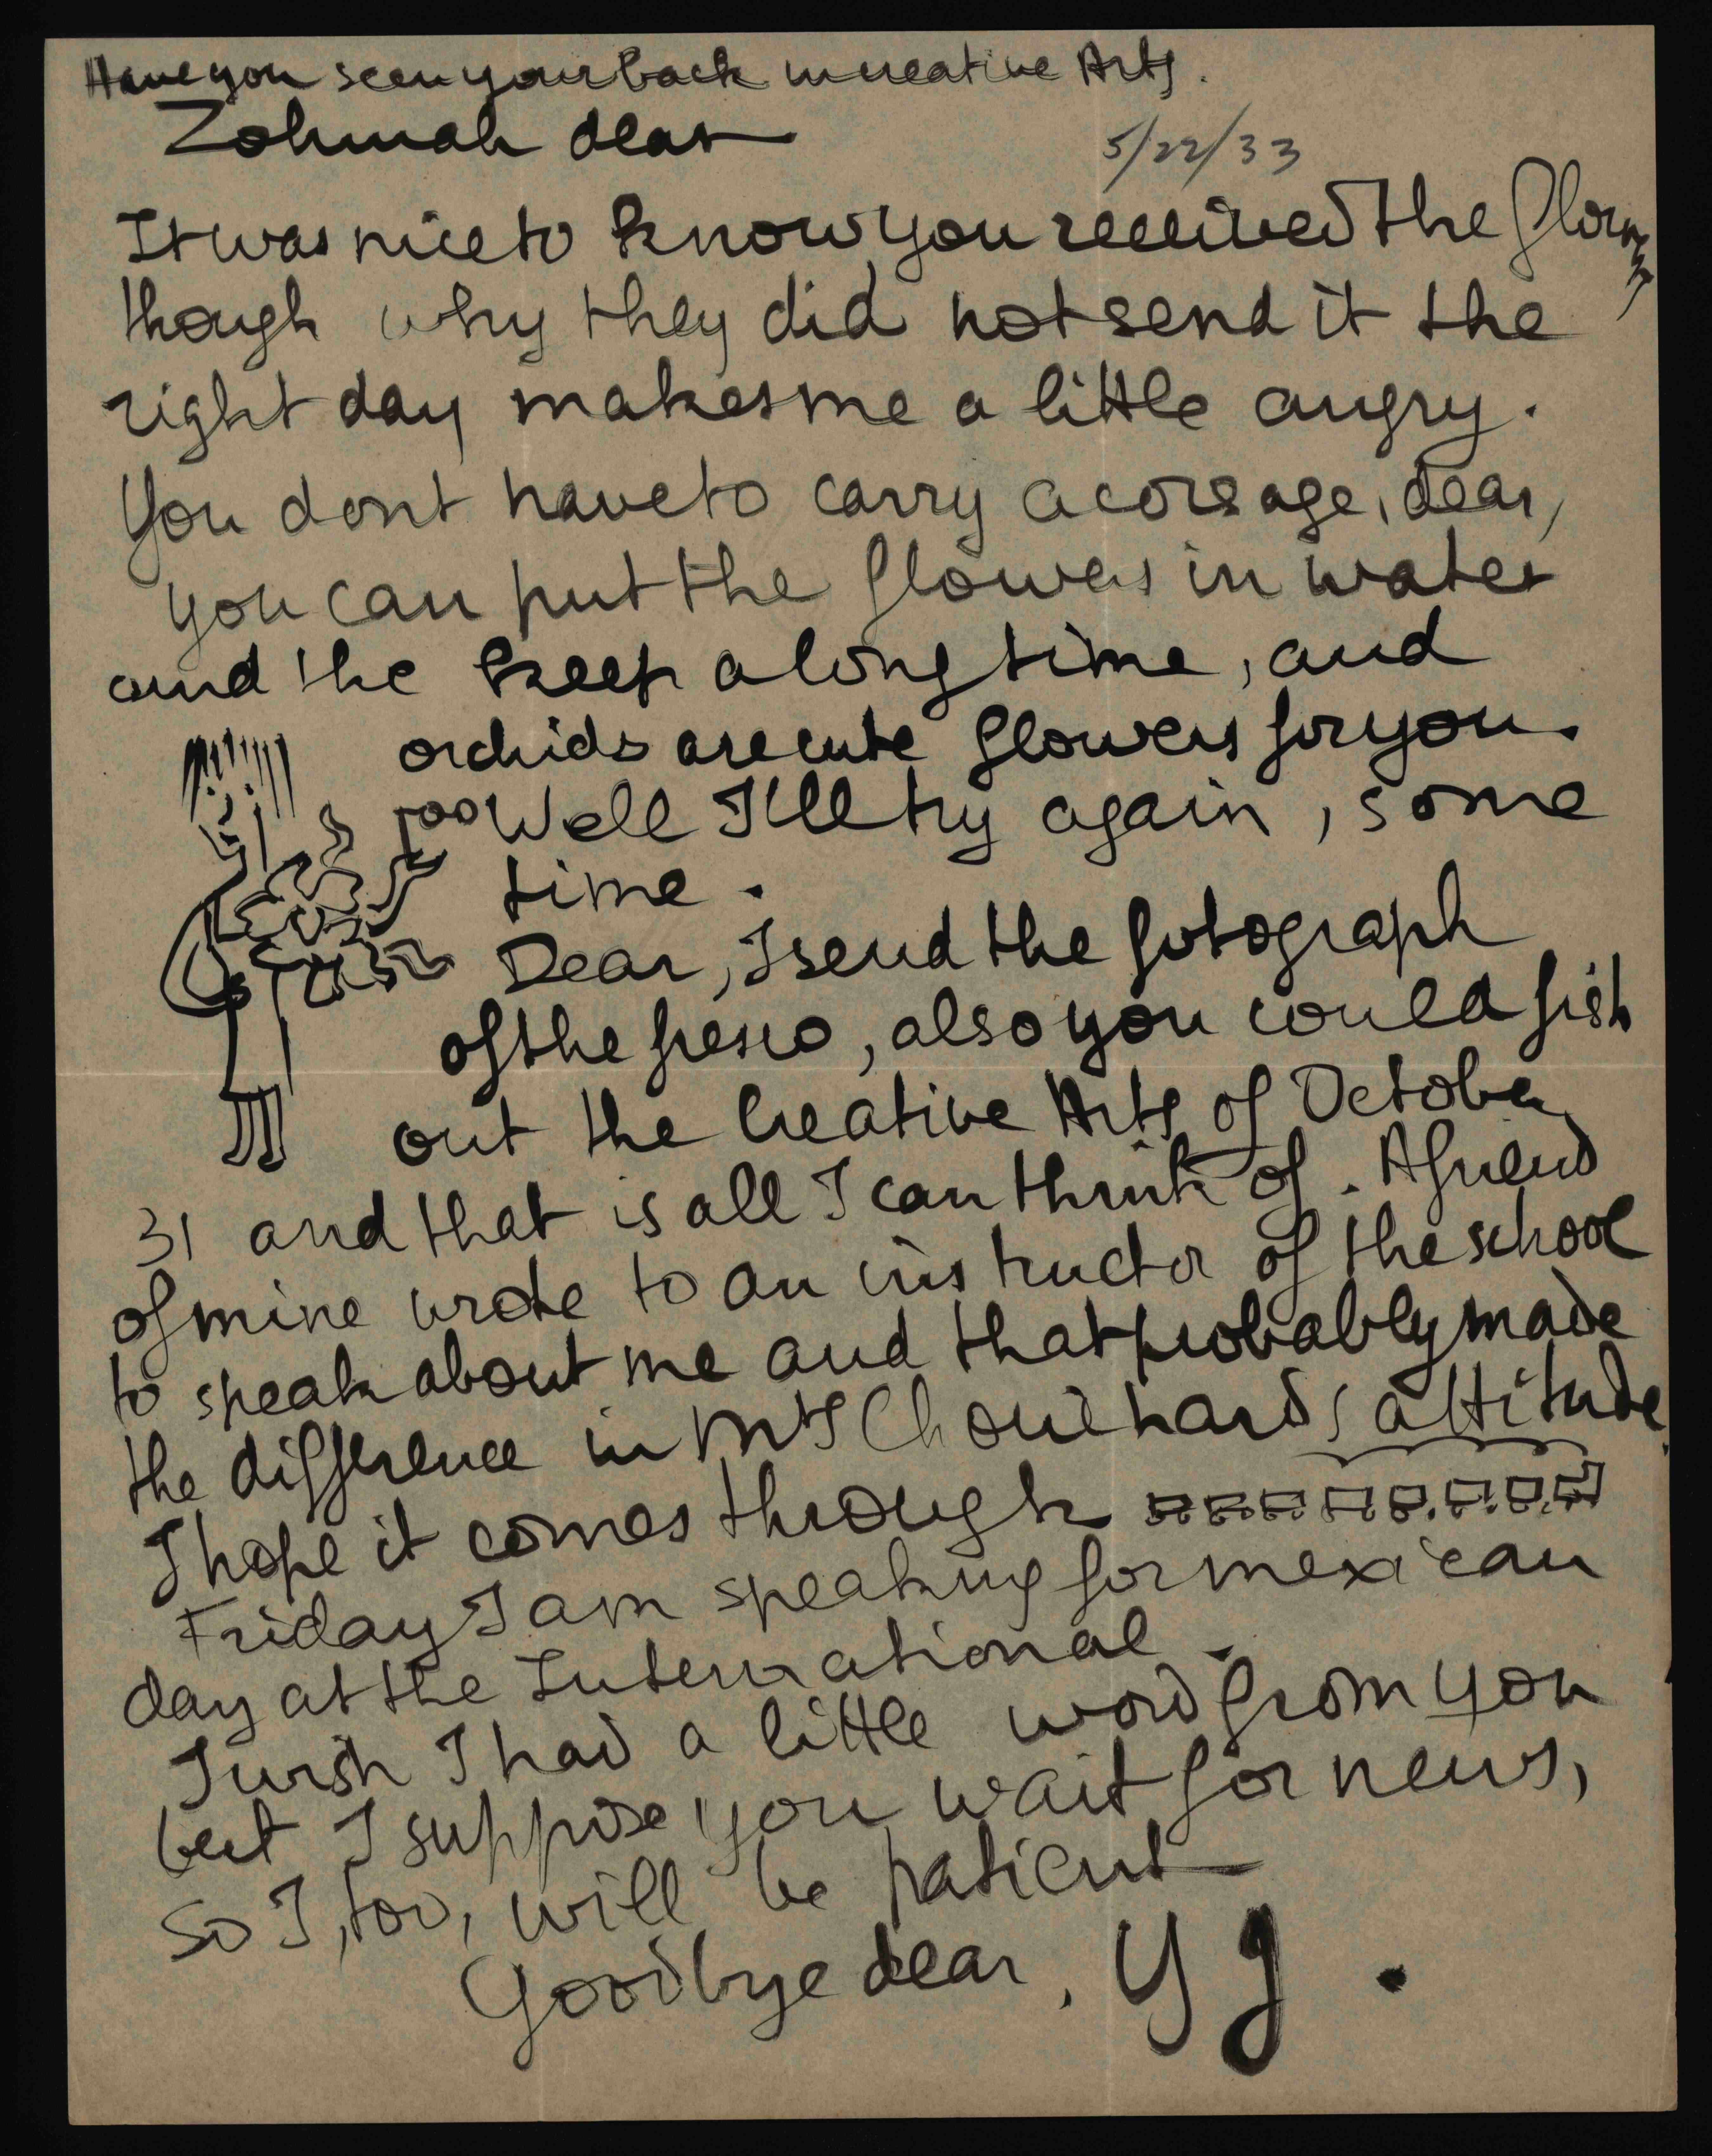 Have you seen your back in creative Arts.
Zohmah dear
5/22/33
It was nice to know you received the flowers
though why they did not send it the
right day makes me a little angry.
You dont have to carry a corsage, dear,
you can put the flowers in water
and the keep a long time, and
orchids are cute flowers for you.
Well I'll try again, some
time.
Dear, I send the fotograph
of the fresco, also you could fish
out the Creative Arts of October
31 and that is all I can think of. A friend
of mine wrote to an instructor of the school
to speak about me and that probably made
the difference in Mrs Chouinards attitude.
I hope it comes through
Friday I am speaking for mexican
day at the International.
I wish I had a little word from you
but I suppose you wait for news,
so I, too, will be patient
Goodbye dear,